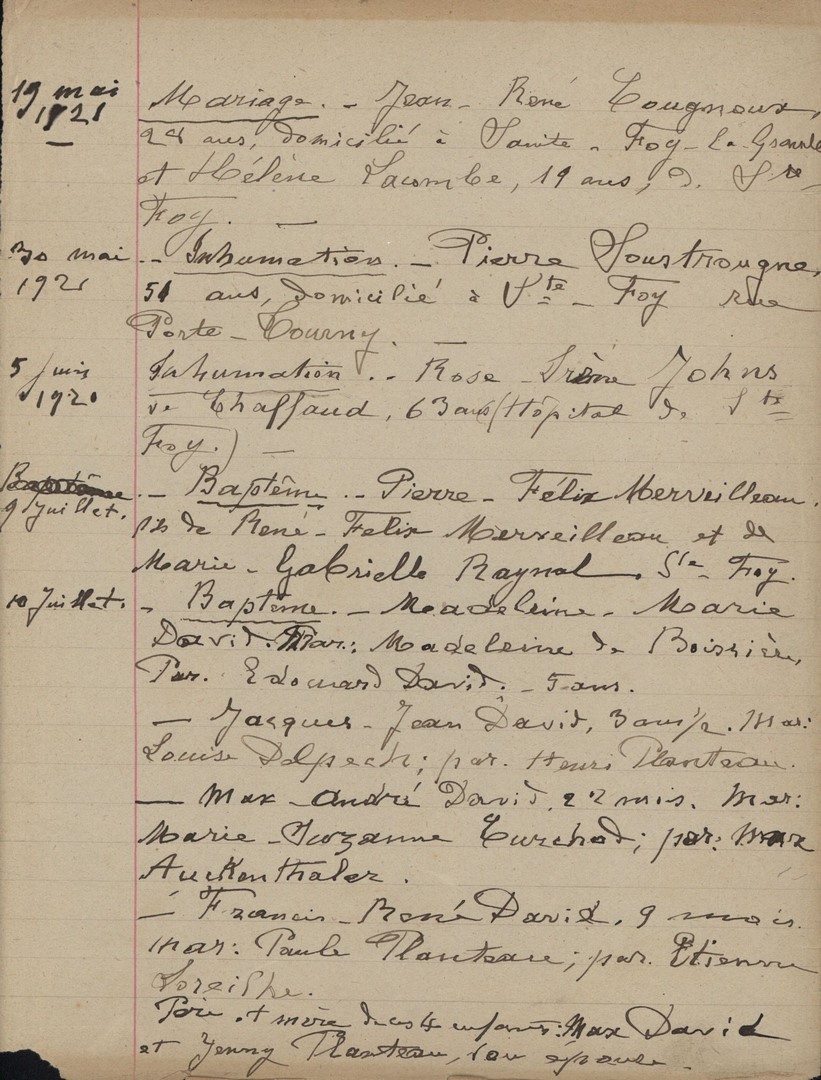 19 mai 1921
Mariage. - Jean - René Cougnoux,
28 ans, domicilié à Sainte - Foy - la - Grande
et Hélène Lacombe, 19 ans, d. Ste -
Foy. —
30 mai 1921
- Inhumation. - Pierre Soustrougne,
51 ans, domicilié à Ste - Foy rue
Porte - Tourny. —
5 juin 1921
Inhumation. - Rose - Irène Johns
de Chaffaud, 63 ans (Hôpital de Ste
Foy.) —
Baptême
9 Juillet.
- Baptême. - Pierre - Félix Merveilleau.
fils de René - Felix Merveilleau et de
Marie - Gabrielle Raynal. Ste - Foy.
10 Juillet.
- Baptême. - Madeleine - Marie
David. Mar: Madeleine de Boissière,
Par. Edouard David. - 5 ans.
— Jacques - Jean David, 3 ans 1/2. Mar:
Louise Delpech; par. Henri Planteau.
— Max - André David, 22 mois. Mar:
Marie - Suzanne Curchod; par: Max
Auckenthaler.
— Francis - René David, 9 mois.
mar: Paule Planteau; par. Etienne
Loreilhe.
Père et mère de ces 4 enfants: Max David
et Jenny Planteau, son épouse.